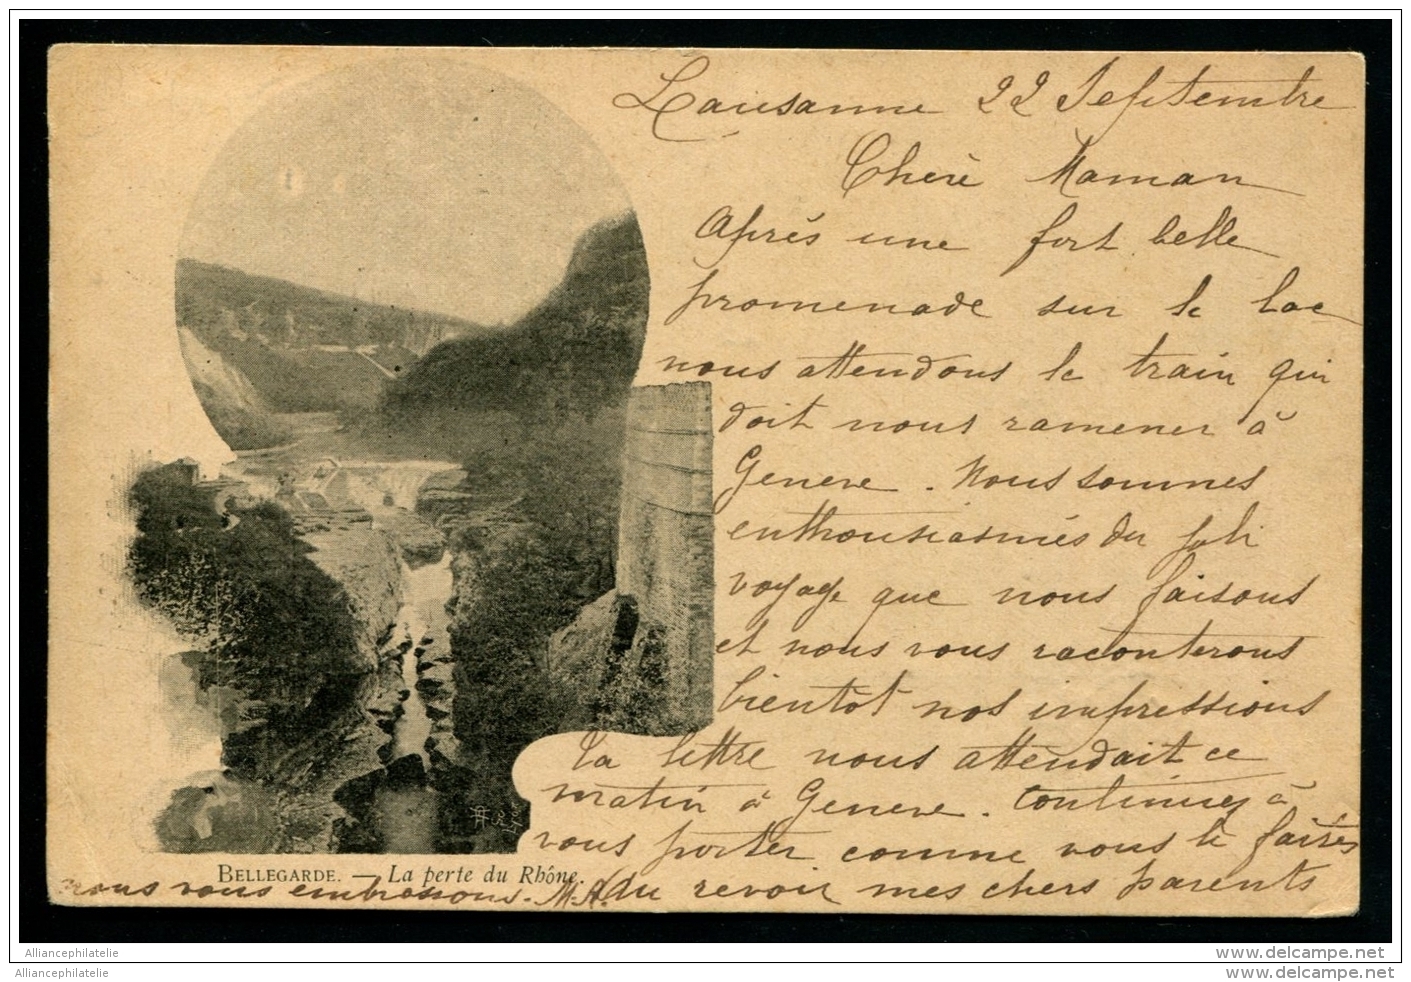 Lausanne 22 Septembre
Chère Maman
Après une fort belle
promenade sur le lac
nous attendons le train qui
doit nous ramener à
Genève. Nous sommes
enthousiasmés du joli
voyage que nous faisons
et nous vous raconterons
bientôt nos impressions
Ta lettre nous attendait ce
matin à Genève. Continuez à
vous porter comme vous le faites
Au revoir mes chers parents
nous vous embrassons. M. A.
BELLEGARDE. — La perte du Rhône.
Alliancephilatelie
Alliancephilatelie
www.delcampe.net
www.delcampe.net